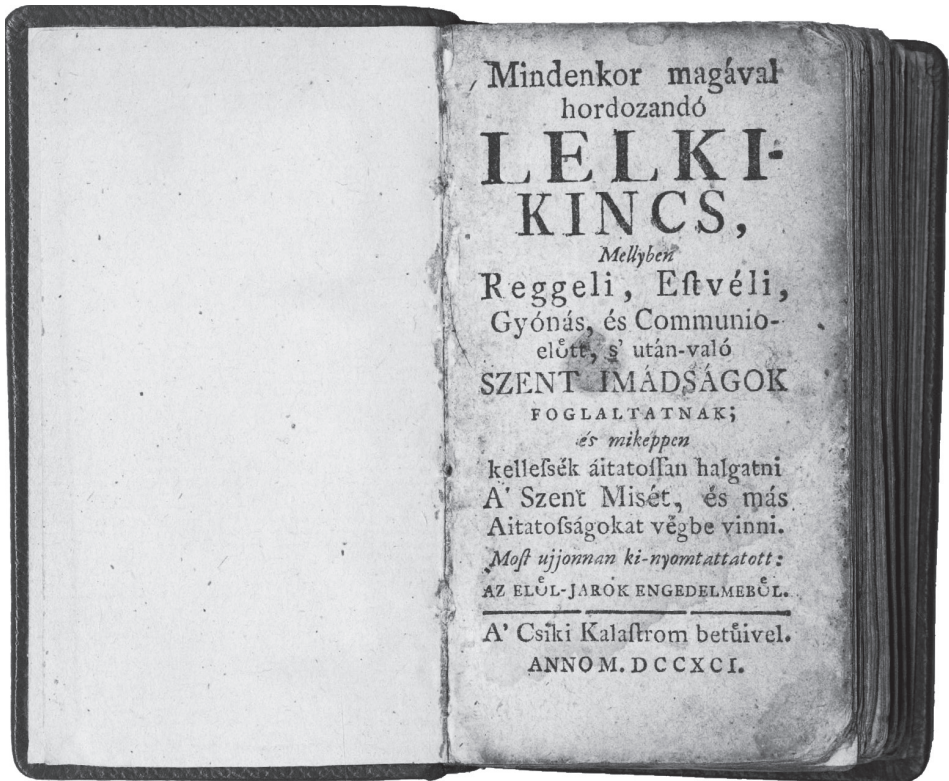 Mindenkor magával
hordozandó
LELKI-
KINCS,
Mellyben
Reggeli, Eſtvéli,
Gyónás, és Communio-
eloͤtt, s' után-való
SZENT IMÁDSÁGOK
FOGLALTATNAK;
és miképpen
kelleſsék áitatoſſan halgatni
A' Szent Misét, és más
Aitatoſságokat végbe vinni.
Moſt ujjonnan ki-nyomtattatott:
AZ ELOͤL-JAROK ENGEDELMEBOͤL.
A' Csiki Kalaſtrom betuͤivel.
ANNO M. DCCXCI.